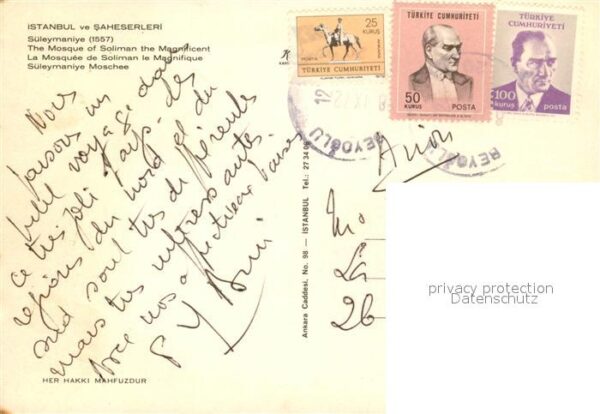 İSTANBUL ve ŞAHESERLERİ
Süleymaniye (1557)
The Mosque of Soliman the Magnificent
La Mosquée de Soliman le Magnifique
Süleymaniye Moschee
25
KURUŞ
POSTA
TÜRKİYE CUMHURİYETİ
TÜRKİYE CUMHURİYETİ
50
KURUŞ
POSTA
TÜRKİYE
CUMHURİYETİ
100
kuruş
posta
BEYOĞLU
BEYOĞLU
Avion
Nous
faisons un
beau voyage dans
ce très joli pays - les
régions du nord et du
sud sont très différentes
mais très intéressantes.
Avec nos affectueux baisers
Ankara Caddesi, No. 98 — İSTANBUL - Tel.: 27 34
La
26
privacy protection
Datenschutz
HER HAKKI MAHFUZDUR